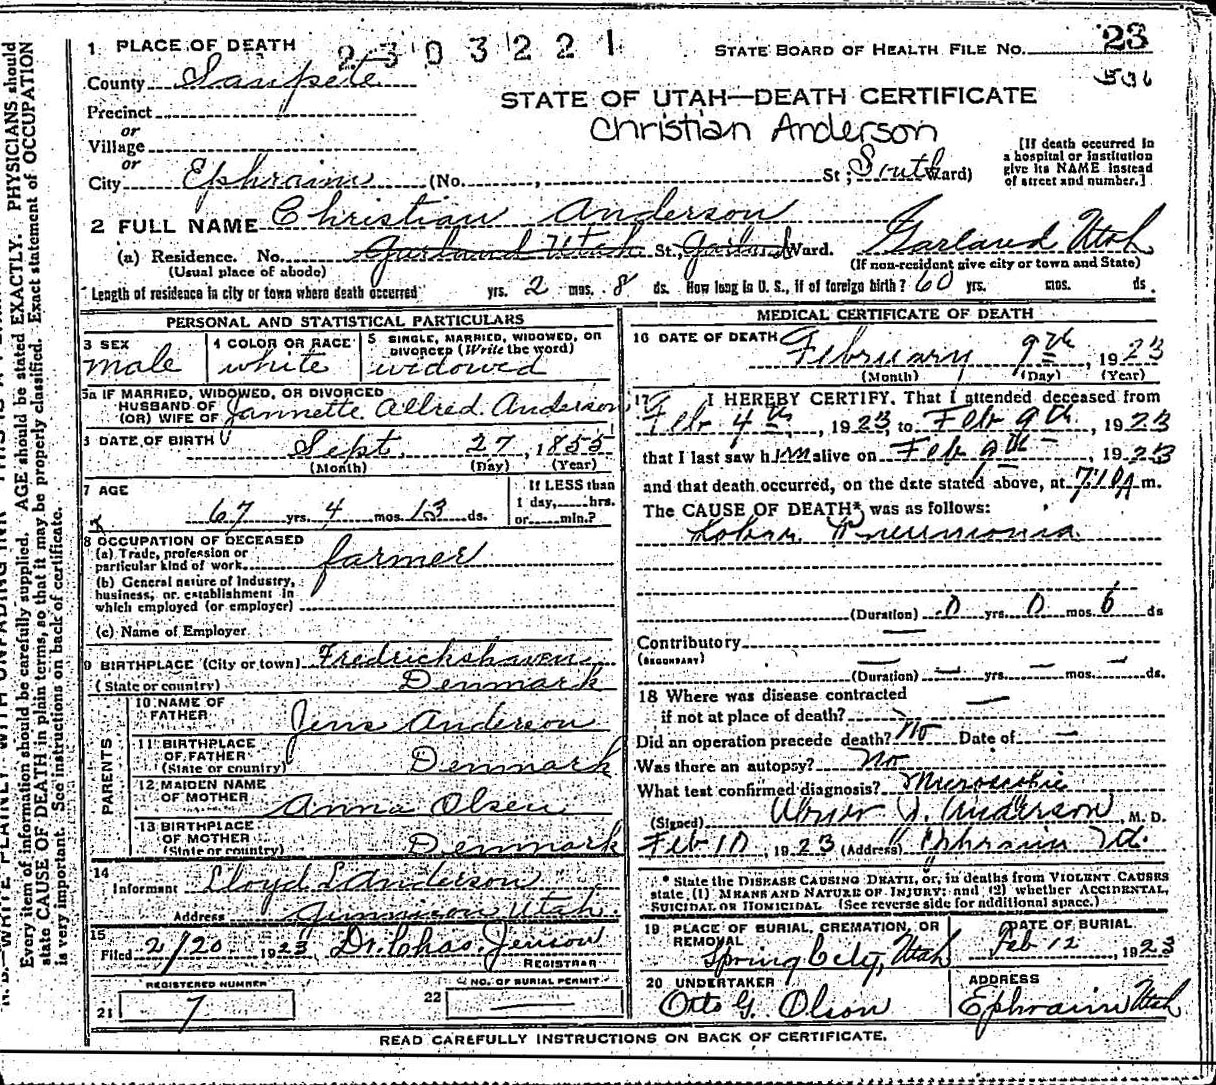 1 PLACE OF DEATH 2303221 STATE BOARD OF HEALTH FILE NO. 23
County Sanpete 536
STATE OF UTAH—DEATH CERTIFICATE
Precinct
or
Village
Christian Anderson
[If death occurred in
a hospital or institution
give its NAME instead
of street and number.]
or
City Ephraim (No. , St; South Ward)
2 FULL NAME Christian Anderson
(a) Residence. No. Garland Utah St., Garland Ward. Garland Utah
(Usual place of abode) (If non-resident give city or town and State)
Length of residence in city or town where death occurred yrs. 2 mos. 8 ds. How long in U. S., if of foreign birth? 60 yrs. mos. ds.
PERSONAL AND STATISTICAL PARTICULARS
3 SEX 4 COLOR OR RACE 5 SINGLE, MARRIED, WIDOWED, OR
DIVORCED (Write the word)
male white widowed
5a IF MARRIED, WIDOWED, OR DIVORCED
HUSBAND OF
(OR) WIFE OF Jannette Allred Anderson
6 DATE OF BIRTH Sept. 27, 1855
(Month) (Day) (Year)
7 AGE If LESS than
1 day, hrs.
67 yrs. 4 mos. 13 ds. or min.?
8 OCCUPATION OF DECEASED
(a) Trade, profession or
particular kind of work farmer
(b) General nature of Industry,
business, or establishment in
which employed (or employer)
(c) Name of Employer
9 BIRTHPLACE (City or town) Fredrickshaven
(State or country) Denmark
PARENTS
10 NAME OF
FATHER Jens Anderson
11 BIRTHPLACE
OF FATHER
(State or country) Denmark
12 MAIDEN NAME
OF MOTHER Anna Olsen
13 BIRTHPLACE
OF MOTHER
(State or country) Denmark
14
Informant Lloyd L Anderson
Address Gunnison Utah
15
Filed 2/20 1923 Dr. Chas. Jenson
REGISTRAR
REGISTERED NUMBER NO. OF BURIAL PERMIT
21 7 22
MEDICAL CERTIFICATE OF DEATH
16 DATE OF DEATH February 9th, 1923
(Month) (Day) (Year)
17 I HEREBY CERTIFY. That I attended deceased from
Feb 4th, 1923, to Feb 9th, 1923
that I last saw him alive on Feb 9th, 1923
and that death occurred, on the date stated above, at 7:10 A m.
The CAUSE OF DEATH* was as follows:
Lobar Pneumonia
(Duration) 0 yrs. 0 mos. 6 ds
Contributory —
(SECONDARY)
(Duration) — yrs. — mos. — ds.
18 Where was disease contracted
if not at place of death? —
Did an operation precede death? No Date of —
Was there an autopsy? No
What test confirmed diagnosis? Microscopic
(Signed) Anderson, M. D.
Feb 10, 1923 (Address) Ephraim Ut.
* State the DISEASE CAUSING DEATH, or, in deaths from VIOLENT CAUSES
state (1) MEANS AND NATURE OF INJURY; and (2) whether ACCIDENTAL,
SUICIDAL OR HOMICIDAL. (See reverse side for additional space.)
19 PLACE OF BURIAL, CREMATION, OR
REMOVAL
Spring City, Utah
DATE OF BURIAL
Feb 12 1923
20 UNDERTAKER
Otto G. Olson
ADDRESS
Ephraim Utah
READ CAREFULLY INSTRUCTIONS ON BACK OF CERTIFICATE.
N. B.—WRITE PLAINLY WITH UNFADING INK—THIS IS A
Every item of information should be carefully supplied. AGE should be stated EXACTLY. PHYSICIANS should
state CAUSE OF DEATH in plain terms, so that it may be properly classified. Exact statement of OCCUPATION
is very important. See instructions on back of certificate.